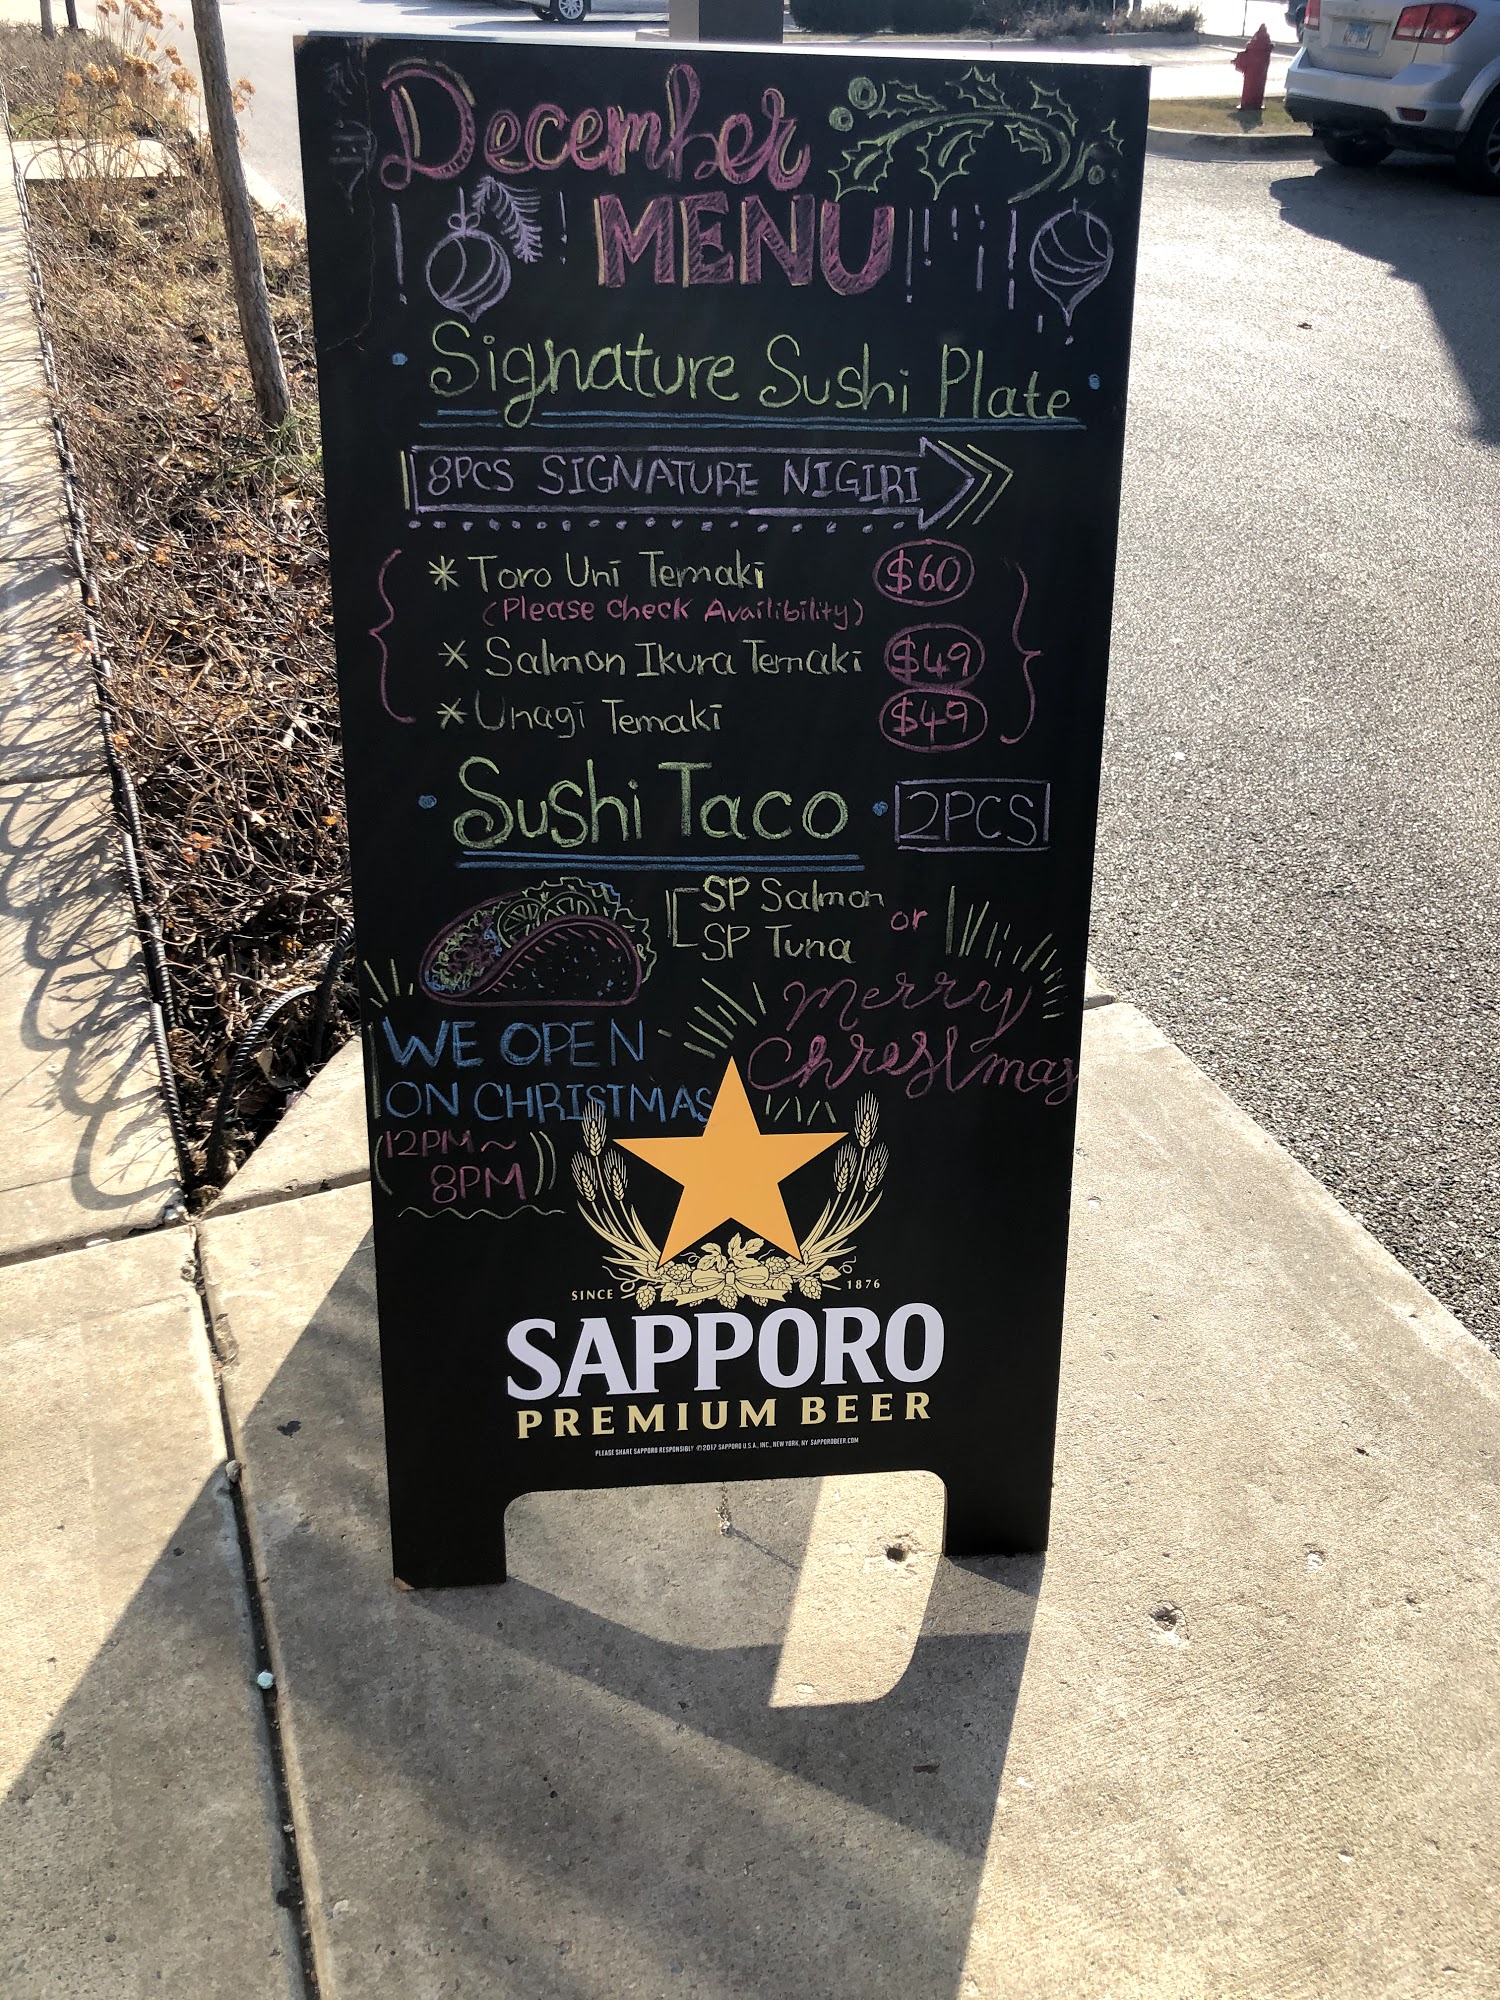 December
MENU
Signature Sushi Plate
8PCS SIGNATURE NIGIRI
* Toro Uni Temaki $60
(Please Check Availibility)
* Salmon Ikura Temaki $49
* Unagi Temaki $49
Sushi Taco 2PCS
SP Salmon or
SP Tuna
Merry
Christmas
WE OPEN
ON CHRISTMAS
(12PM~
8PM)
SINCE 1876
SAPPORO
PREMIUM BEER
PLEASE SHARE SAPPORO RESPONSIBLY ©2017 SAPPORO U.S.A., INC., NEW YORK, NY SAPPOROBEER.COM